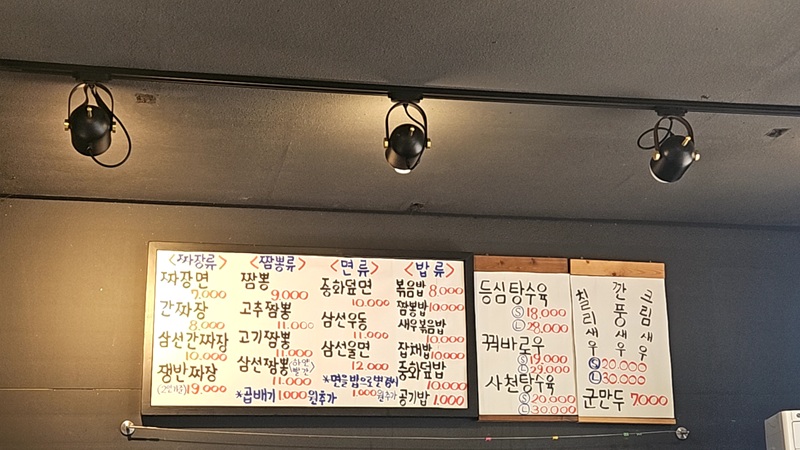 <짜장류>
짜장면
7.000
간짜장
8.000
삼선간짜장
10.000
쟁반짜장
(2인기준) 19.000
<짬뽕류>
짬뽕
9.000
고추짬뽕
11.000
고기짬뽕
11.000
삼선짬뽕 (하얀/빨간)
11.000
*곱배기 1.000원추가
<면류>
중화덮면
10.000
삼선우동
11.000
삼선울면
12.000
*면을 밥으로 변경시
1.000원추가
<밥류>
볶음밥 8.000
짬뽕밥 10.000
새우볶음밥
10.000
잡채밥
10.000
중화덮밥
10.000
공기밥 1.000
등심탕수육
Ⓢ 18.000
Ⓛ 28.000
꿔바로우
Ⓢ 19.000
Ⓛ 29.000
사천탕수육
Ⓢ 20.000
Ⓛ 30.000
칠리새우
깐풍새우
크림새우
Ⓢ 20.000
Ⓛ 30.000
군만두 7000